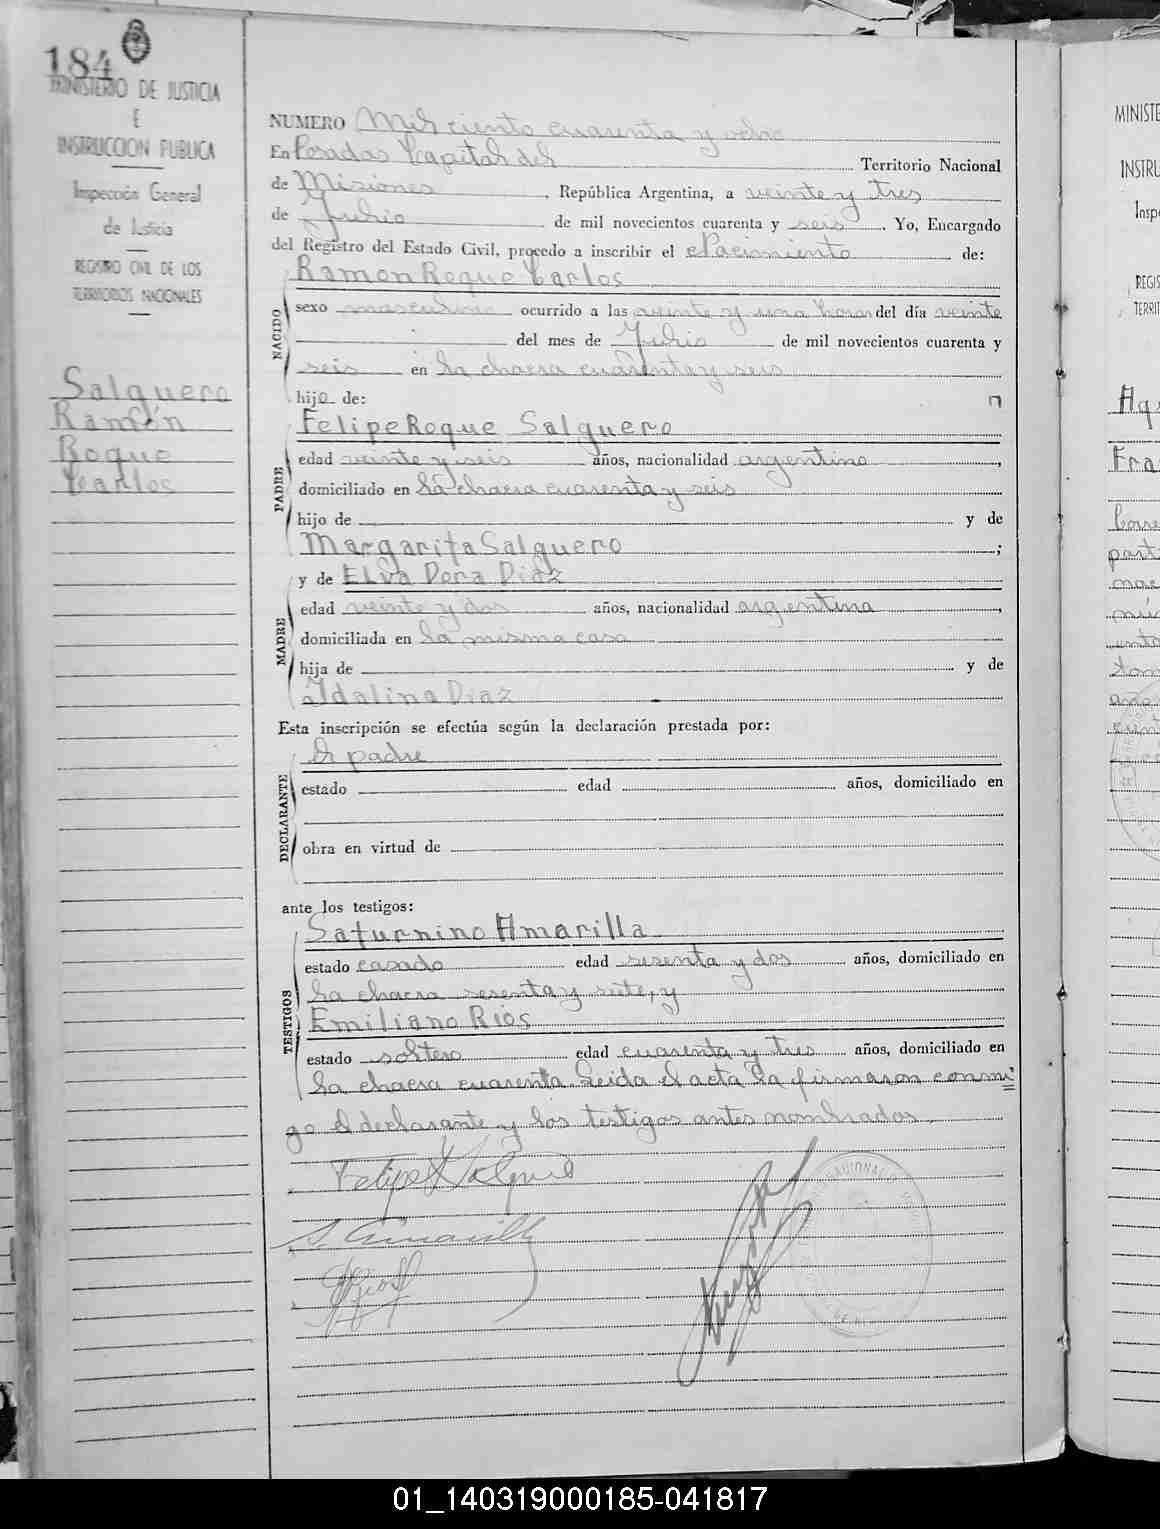 184
MINISTERIO DE JUSTICIA
E
INSTRUCCION PUBLICA
Inspección General
de Justicia
REGISTRO CIVIL DE LOS
TERRITORIOS NACIONALES
Salguero
Ramón
Roque
Carlos
NUMERO Mil ciento cuarenta y ocho
En Posadas Capital del Territorio Nacional
de Misiones, República Argentina, a veinte y tres
de Julio de mil novecientos cuarenta y seis. Yo, Encargado
del Registro del Estado Civil, procedo a inscribir el Nacimiento de:
NACIDO
Ramon Roque Carlos
sexo masculino ocurrido a las veinte y una horas del día veinte
del mes de Julio de mil novecientos cuarenta y
seis en la chacra cuarenta y seis
hijo de:
PADRE
Felipe Roque Salguero
edad veinte y seis años, nacionalidad argentino,
domiciliado en la chacra cuarenta y seis
hijo de y de
Margarita Salguero;
MADRE
y de Elva Dora Diaz
edad veinte y dos años, nacionalidad argentina,
domiciliada en la misma casa
hija de y de
Idalina Diaz
Esta inscripción se efectúa según la declaración prestada por:
DECLARANTE
el padre
estado edad años, domiciliado en
obra en virtud de
ante los testigos:
TESTIGOS
Saturnino Amarilla
estado casado edad sesenta y dos años, domiciliado en
la chacra sesenta y siete, y
Emiliano Rios
estado soltero edad cuarenta y tres años, domiciliado en
la chacra cuarenta. Leida el acta la firmaron conmi=
go el declarante y los testigos antes nombrados.
Felipe R Salguero
S. Amarilla
MINISTE
INSTRU
Inspe
REGIS
TERRIT
01_140319000185-041817